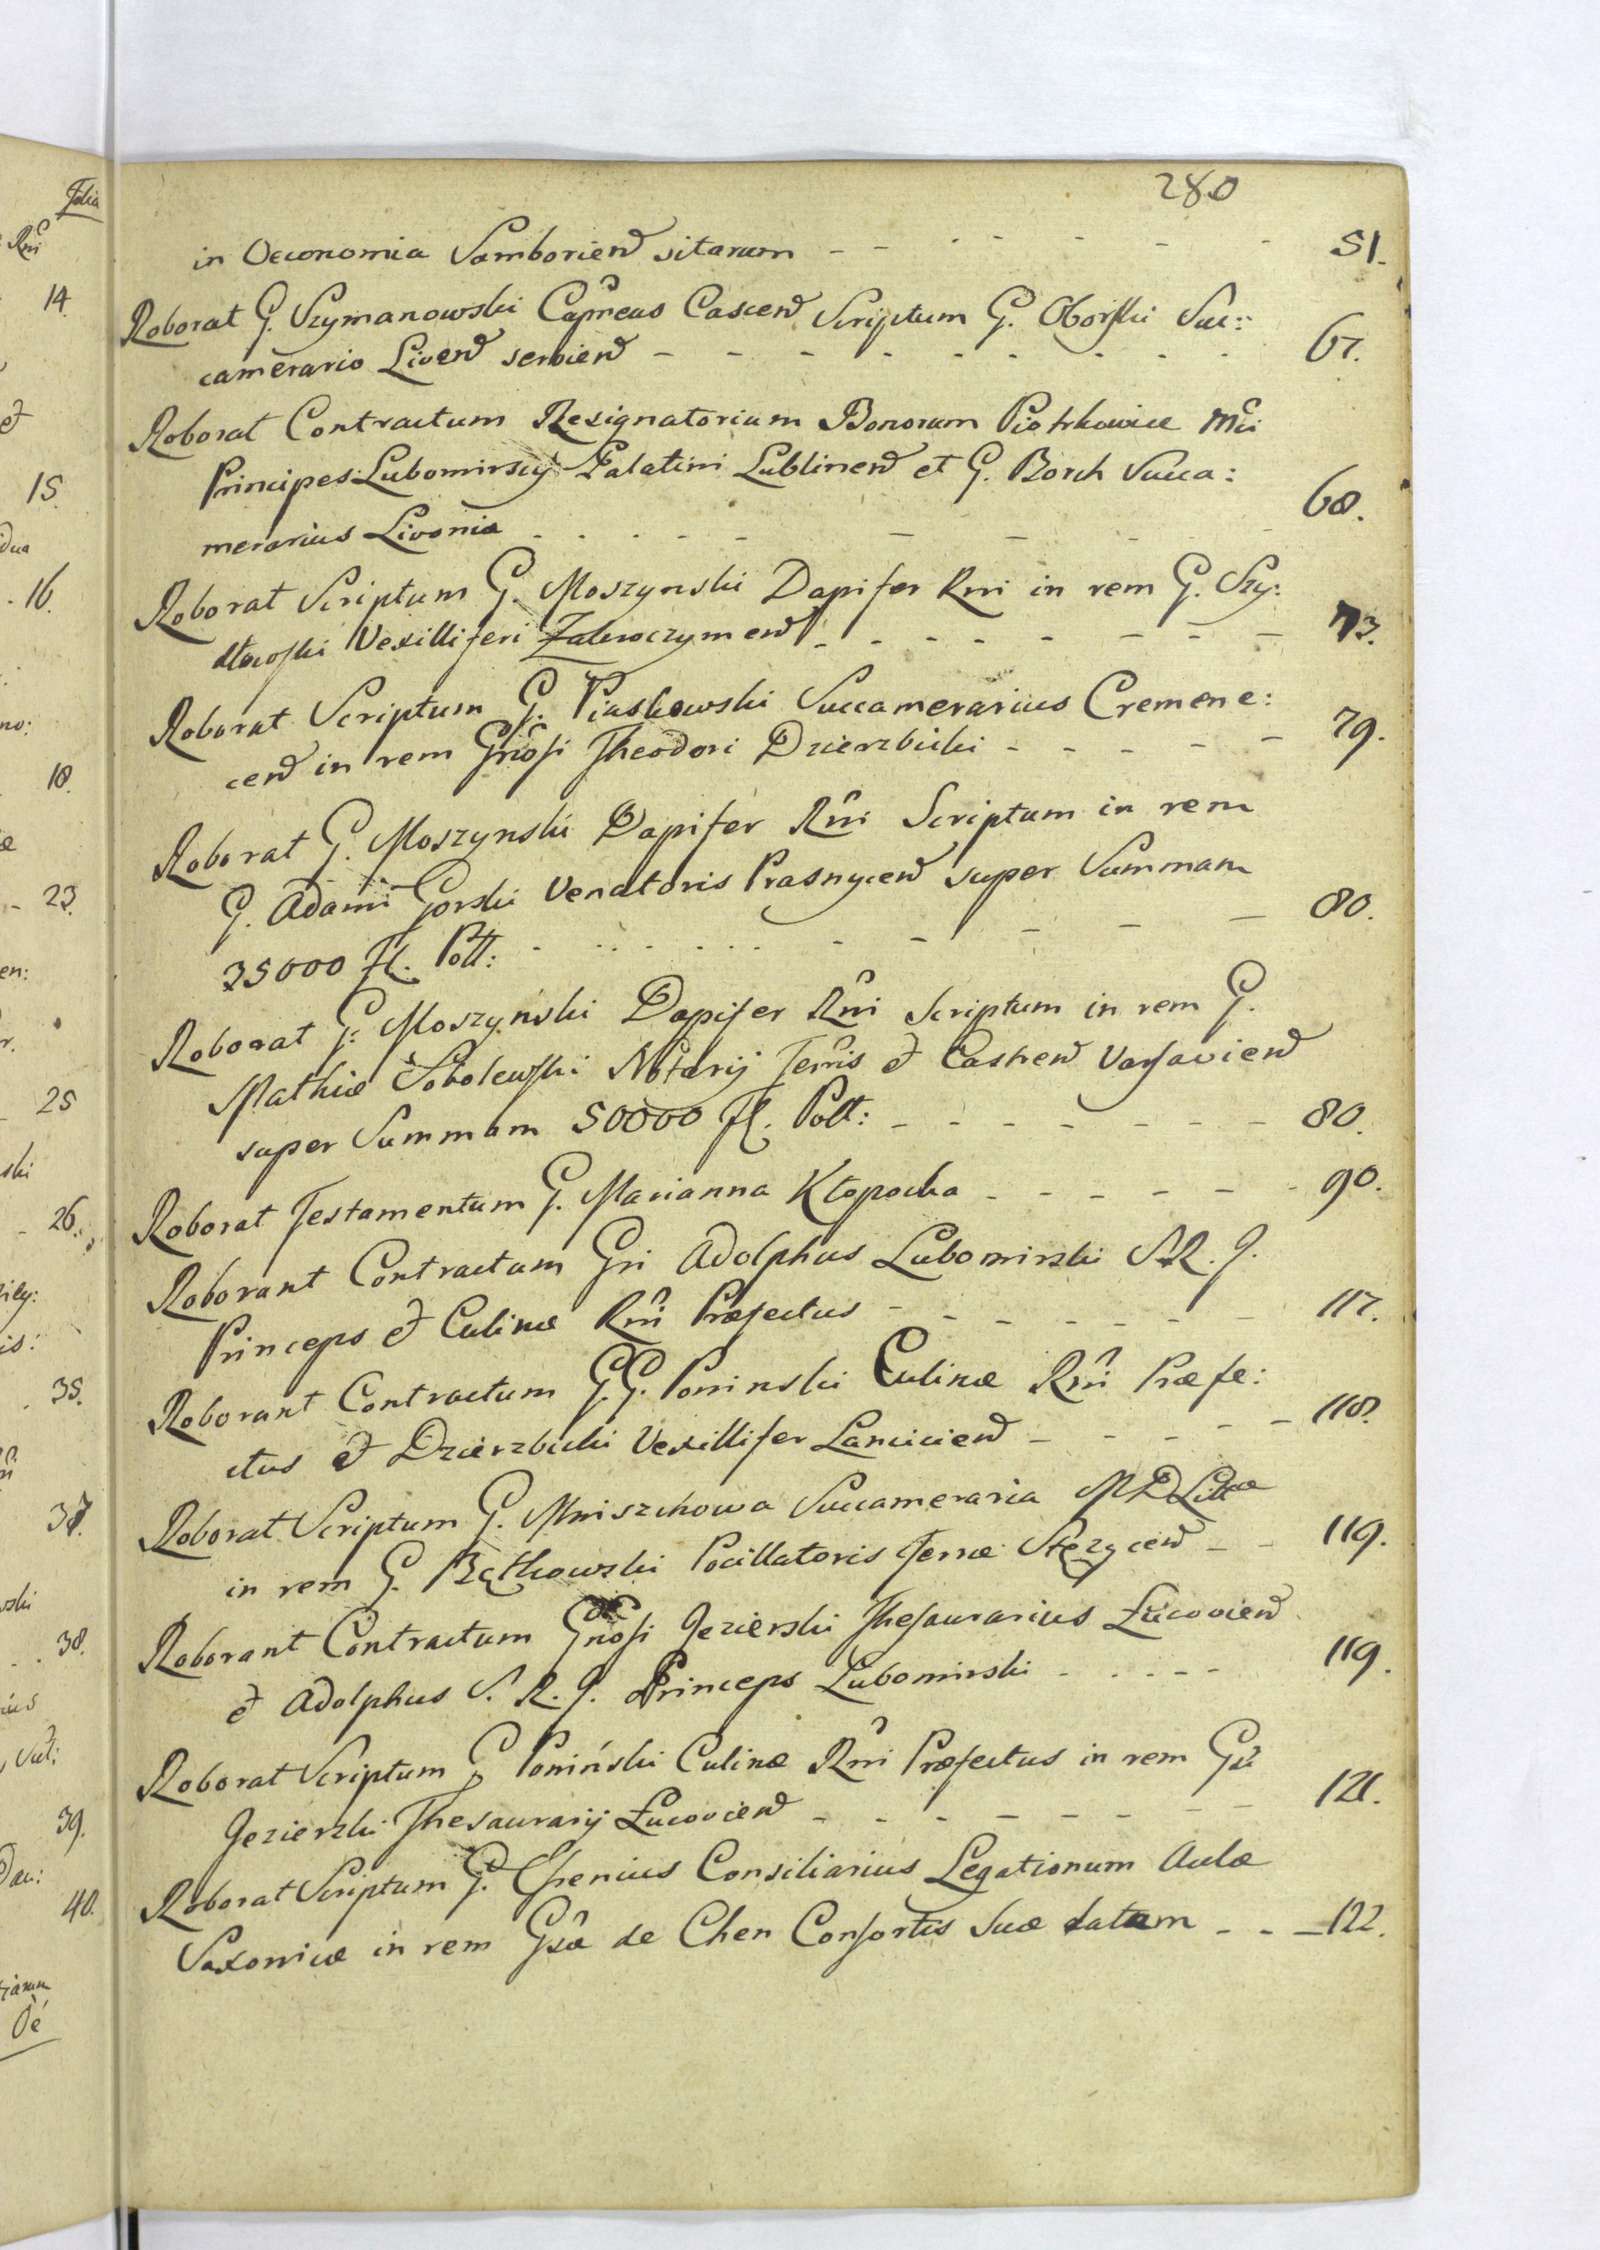 280
in Oeconomia Samborien sitarum - - - - - - - 51.
Roborat G. Szymanowski Capneus Cascen Scriptum G. Oborski Suc::
camerario Liven servien - - - - - - - - - 67.
Roborat Contractum Resignatorium Bonorum Piotrkowice Mci
Principes Lubomirscy Palatini Lublinen et G. Borch Succa:
merarius Livoniæ - - - - - - - - - 68.
Roborat Scriptum G. Moszynski Dapifer Rni in rem G. Szy:
dłowski Vexilliferi Zakroczymen - - - - - - - - 73.
Roborat Scriptum G. Piaskowski Succamerarius Cremene:
cen in rem Gnosi Theodori Dzierzbicki - - - - - - 79.
Roborat G. Moszynski Dapifer Rni Scriptum in rem
G. Adami Gorski Venatoris Prasnycen super Summam
35000 Fl. Poll: - - - - - - - - - - 80.
Roborat G. Moszyński Dapifer Rni scriptum in rem G.
Mathiæ Sobolewski Notarij Terris et Castren Varsavien
super Summam 50000 Fl. Poll: - - - - - - - 80.
Roborat Testamentum G. Marianna Kłopocka - - - - - - 90.
Roborant Contractum Gri Adolphus Lubomirski S.R.J.
Princeps et Culinæ Rni Præfectus - - - - - - - 117.
Roborant Contractum G.G. Poninski Culinæ Rni Præfe:
ctus et Dzierzbicki Vexillifer Lancicien - - - - - 118.
Roborat Scriptum G. Mniszchowa Succameraria M D Littæ
in rem G. Bątkowski Pocillatoris Terræ Stęzycen - - 119.
Roborant Contractum Gnosi Jezierski Thesaurarius Łucovien
et Adolphus S. R. J. Princeps Lubomirski - - - - - 119.
Roborat Scriptum G Poniński Culinæ Rni Præfectus in rem Gsi
Jezierski Thesaurarij Łucovien - - - - - - - - 121.
Roborat Scriptum G. Essenius Consiliarius Legationum Aulæ
Saxonicæ in rem Gsæ de Chen Consortis Suæ datum - - - 122.